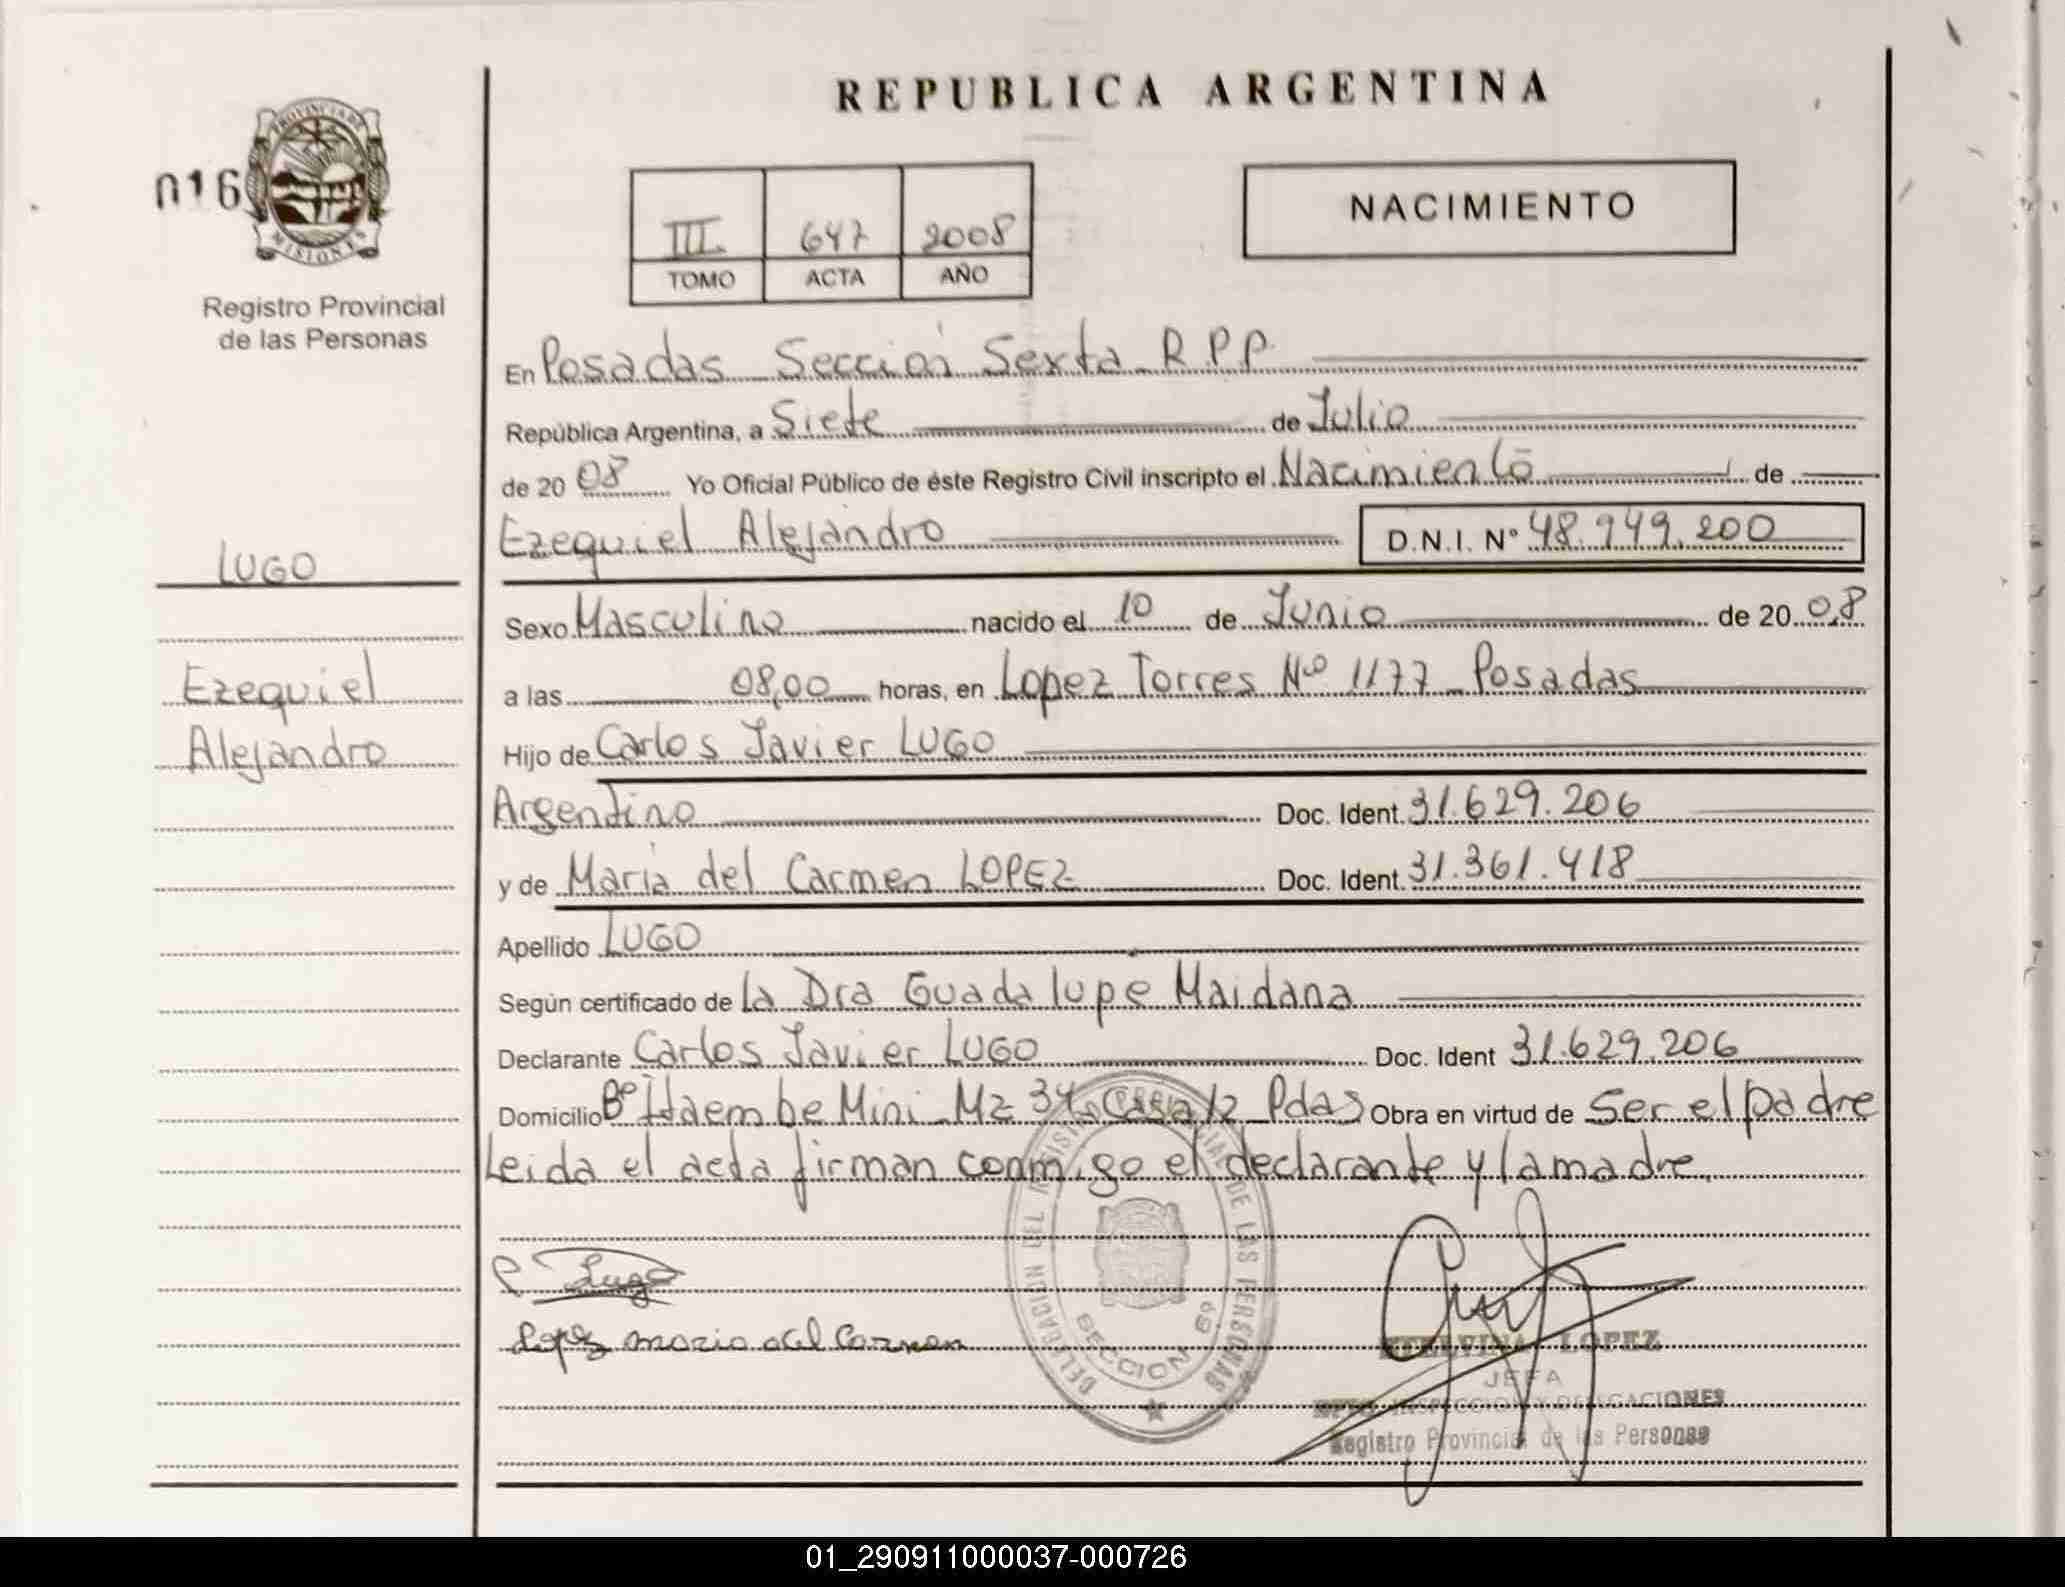 REPUBLICA ARGENTINA
016
PROVINCIA DE
MISIONES
Registro Provincial
de las Personas
III 647 2008
TOMO ACTA AÑO
NACIMIENTO
En Posadas Sección Sexta R.P.P.
República Argentina, a Siete de Julio
de 20 08 Yo Oficial Público de éste Registro Civil inscripto el Nacimiento de
Ezequiel Alejandro D.N.I. Nº 48.949.200
LUGO
Sexo Masculino nacido el 10 de Junio de 20 08
Ezequiel
a las 08,00 horas, en Lopez Torres Nº 1177 Posadas
Alejandro
Hijo de Carlos Javier LUGO
Argentino Doc. Ident. 31.629.206
y de Maria del Carmen LOPEZ Doc. Ident. 31.361.418
Apellido LUGO
Según certificado de la Dra Guadalupe Maidana
Declarante Carlos Javier LUGO Doc. Ident 31.629.206
Domicilio Bº Itaembe Mini Mz 34 Casa 12 Pdas Obra en virtud de Ser el padre
Leida el acta firman conmigo el declarante y la madre.
DELEGACION DEL REGISTRO PROVINCIAL DE LAS PERSONAS
SECCION 6ª
C Lugo
Lopez maria del Carmen
ETELVINA LOPEZ
JEFA
DPTO. INSPECCION Y DELEGACIONES
Registro Provincial de las Personas
01_290911000037-000726